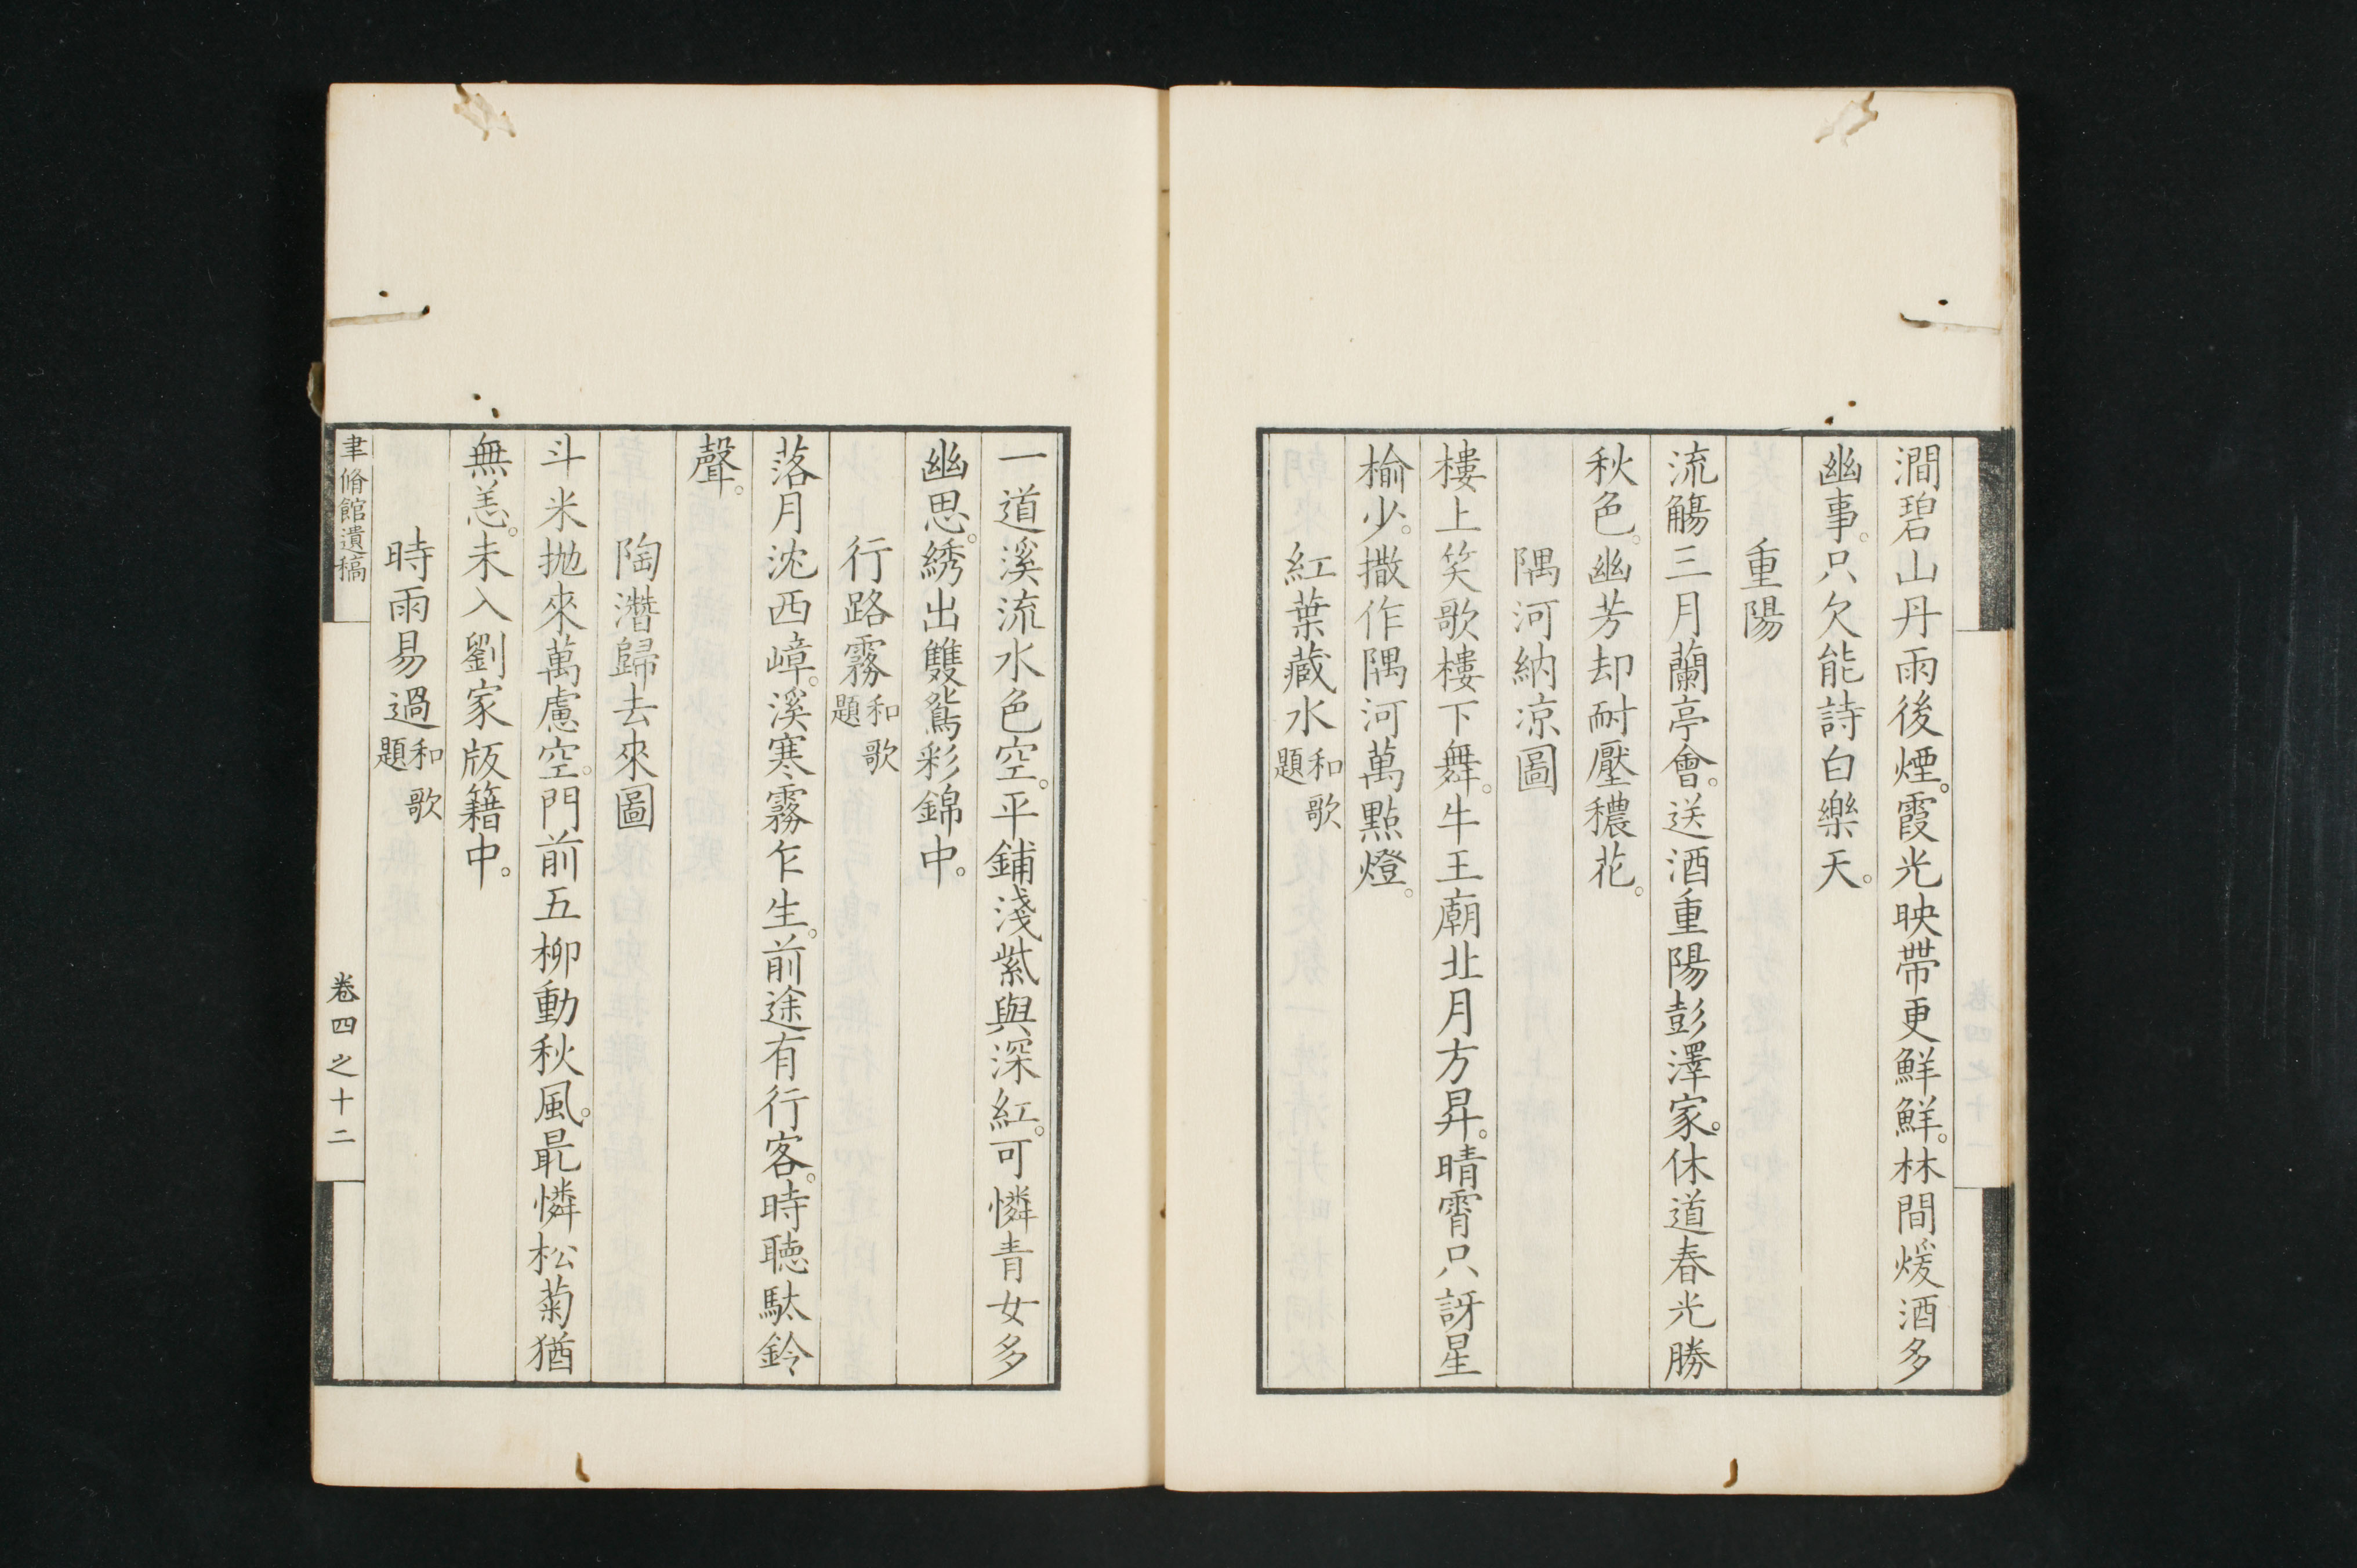 澗碧山丹雨後煙。霞光映帶更鮮鮮。林間煖酒多
幽事。只欠能詩白樂天。
重陽
流觴三月蘭亭會。送酒重陽彭澤家。休道春光勝
秋色。幽芳却耐壓穠花。
隅河納凉圖
樓上笑歌樓下舞。牛王廟北月方昇。晴霄只訝星
榆少。撒作隅河萬點燈。
紅葉藏水和歌題
一道溪流水色空。平鋪淺紫與深紅。可憐青女多
幽思。綉出雙鴛彩錦中。
行路霧和歌題
落月沈西嶂。溪寒霧乍生。前途有行客。時聽馱鈴
聲。
陶潛歸去來圖
斗米拋來萬慮空。門前五柳動秋風。最憐松菊猶
無恙。未入劉家版籍中。
時雨易過和歌題
聿脩館遺稿
卷四之十二